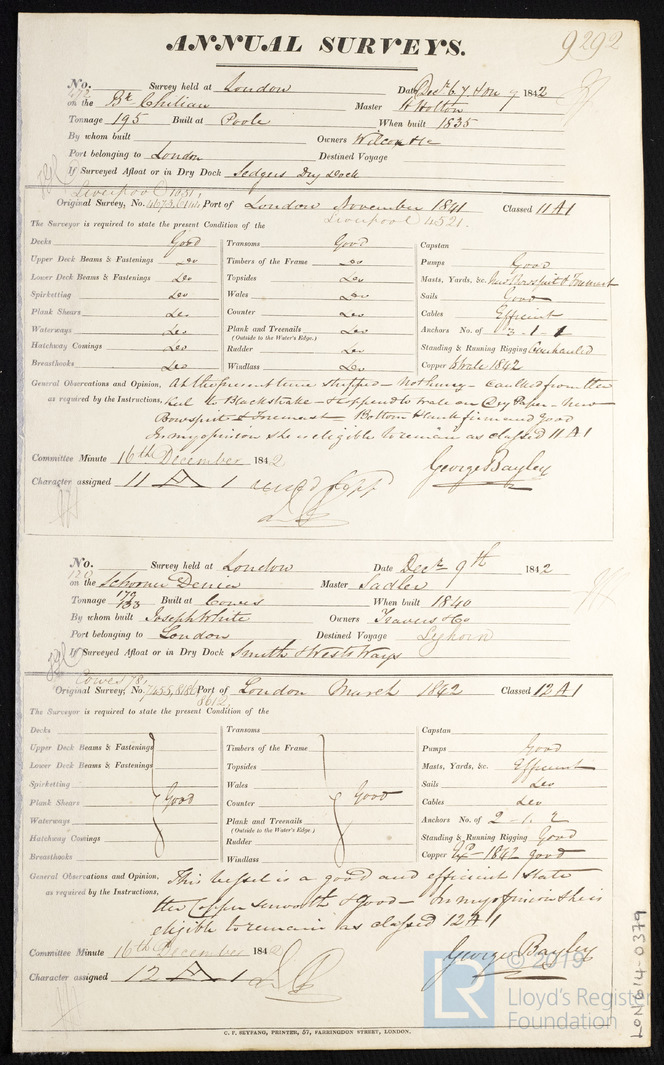 ANNUAL SURVEYS.
9292
No. 472 Survey held at London Date Decr 6 7 1842
on the Bk Chilian Master H Holton
Tonnage 195 Built at Poole When built 1835
By whom built Owners Wilcox &c
Port belonging to London Destined Voyage
If Surveyed Afloat or in Dry Dock Sedgers Dry Dock
Liverpool 1051,
Original Survey, No. Port of London November 1841 Classed 11 A 1
Liverpool 4521.
The Surveyor is required to state the present Condition of the
Decks Good Transoms Good Capstan
Upper Deck Beams & Fastenings Do Timbers of the Frame Do Pumps Good
Lower Deck Beams & Fastenings Do Topsides Do Masts, Yards, &c. New Bowsprit & Foremast
Spirketting Do Wales Do Sails Good
Plank Shears Do Counter Do Cables Efficient
Waterways Do Plank and Treenails Do Anchors No. of 3 - 1 - 1
(Outside to the Water's Edge.)
Hatchway Comings Do Rudder Do Standing & Running Rigging Overhauled
Breasthooks Do Windlass Do Copper Wrale 1842
General Observations and Opinion, At the present time stripped - not hung - caulked from the
as required by the Instructions, Keel to Blackstrake - & append to wale on Dry Paper - New
Bowsprit & Foremast - Bottom plank firm and good
In my opinion she is eligible to remain as classed 11 A 1
Committee Minute 16th December 1842 George Bayley
Character assigned 11 A 1
No. 120 Survey held at London Date Decr 9th 1842
on the Schooner Denia Master Sadler
Tonnage 179/133 Built at Cowes When built 1840
By whom built Joseph White Owners Travers & Co
Port belonging to London Destined Voyage Leghorn
If Surveyed Afloat or in Dry Dock Smith & Wests Ways
Cowes 78,
Original Survey, No. 7455, 8186 Port of London March 1842 Classed 12 A 1
8612,
The Surveyor is required to state the present Condition of the
Decks Transoms Capstan
Upper Deck Beams & Fastenings Timbers of the Frame Pumps Good
Lower Deck Beams & Fastenings Topsides Masts, Yards, &c. Efficient
Spirketting Wales Sails Do
Plank Shears Good Counter Good Cables Do
Waterways Plank and Treenails Anchors No. of 2 - 1. 2
(Outside to the Water's Edge.)
Hatchway Comings Rudder Standing & Running Rigging Good
Breasthooks Windlass Copper 1842 good
General Observations and Opinion, This vessel is a good and efficient state
as required by the Instructions, the Copper smooth & good - In my opinion she is
eligible to remain as classed 12 A 1
Committee Minute 16th December 1842 George Bayley
Character assigned 12 A 1
© 2019
LR Lloyd's Register
Foundation
C. F. SEYFANG, PRINTER, 57, FARRINGDON STREET, LONDON.
LON614-0379